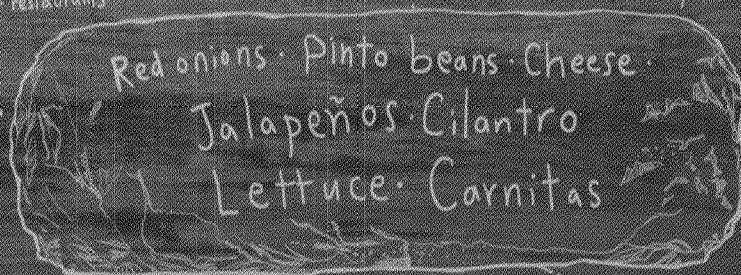 restaurants
Red onions · Pinto beans · Cheese ·
Jalapeños · Cilantro
Lettuce · Carnitas